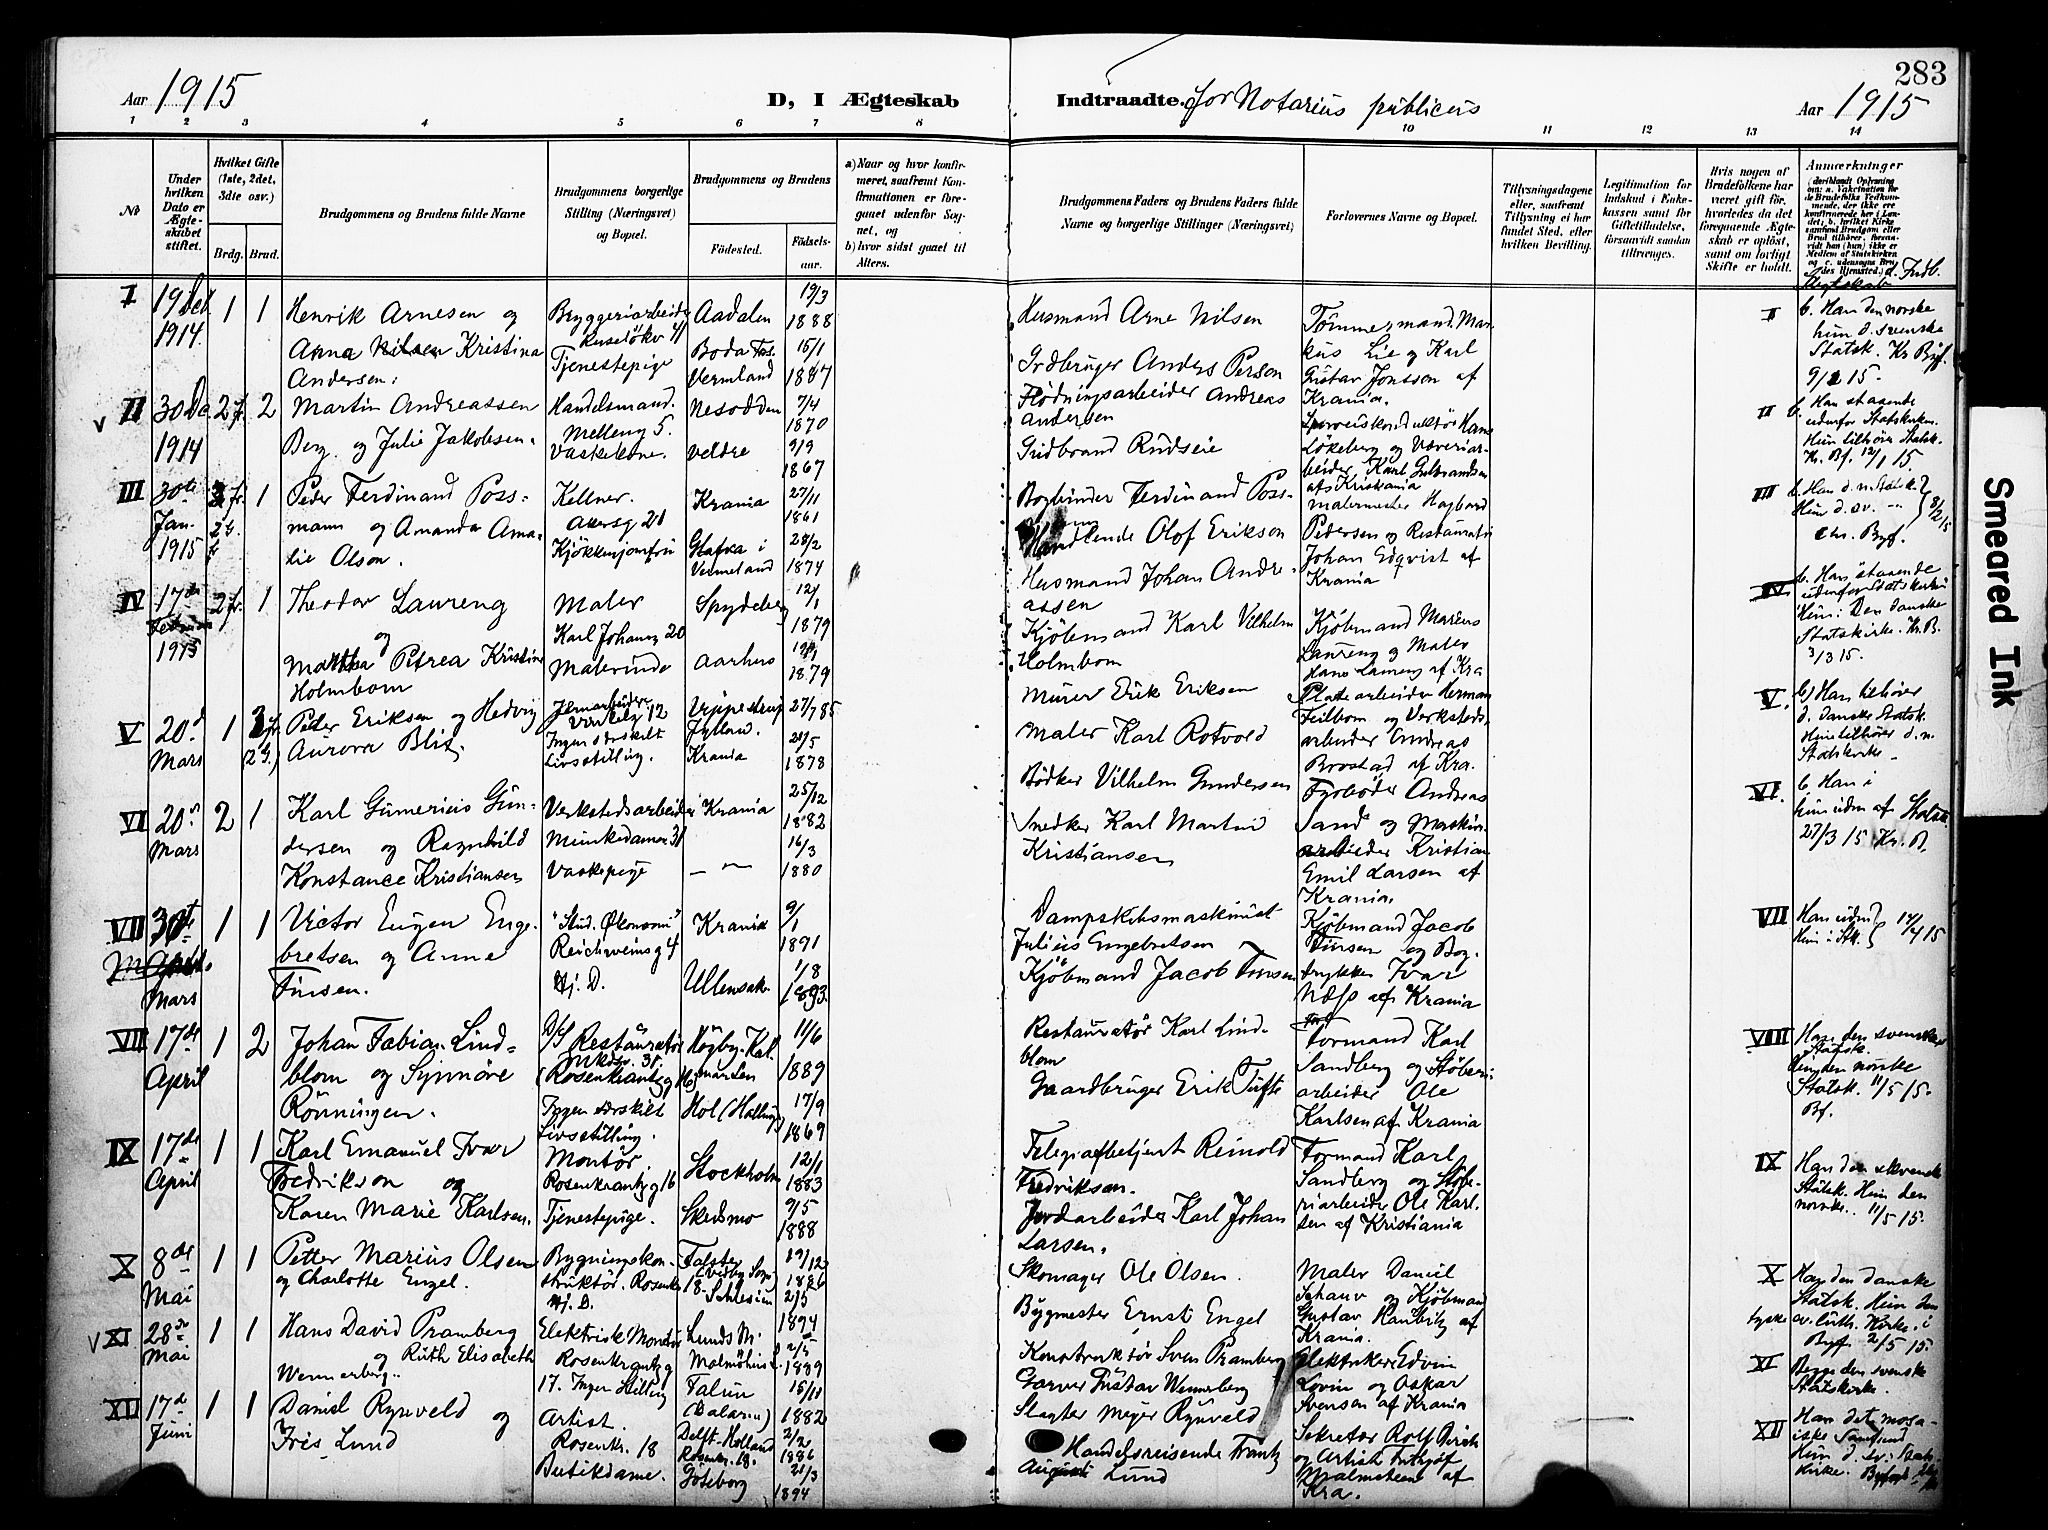 283
Aar 1915
D, I Ægteskab
Indtraadte. for Notarius publicus
Aar 1915
1 2 3 4 5 6 7 8 10 11 12 13 14
No
Under hvilken Dato er Ægteskabet stiftet.
Hvilket Gifte (1ste, 2det, 3dte osv.)
Brdg. Brud.
Brudgommens og Brudens fulde Navne
Brudgommens borgerlige Stilling (Næringsvei) og Bopæl.
Brudgommens og Brudens
Fødested.
Fødselsaar.
a) Naar og hvor konfirmeret, saafremt Konfirmationen er foregaaet udenfor Sognet, og
b) hvor sidst gaaet til Alters.
Brudgommens Faders og Brudens Faders fulde Navne og borgerlige Stillinger (Næringsvei)
Forlovernes Navne og Bopæl.
Tillysningsdagene eller, saafremt Tillysning ei har fundet Sted, efter hvilken Bevilling.
Legitimation for Indskud i Enkekassen samt for Giftetilladelse, forsaavidt saadan tiltrænges.
Hvis nogen af Brudefolkene har været gift før, hvorledes da det foregaaende Ægteskab er opløst, samt om lovligt Skifte er holdt.
Anmærkninger
I
19 Dec 1914
1 1
Henrik Arnesen og
Anna Kristina
Andersen.
Bryggeriarbeider
Ruseløkv 41
Tjenestepige
Aadalen
19/3 1888
Boda
Vermland
15/1 1887
Husmand Arne Nilsen
Grdbruger Anders Person
Tømmermand Mar-
kus Lie og Karl
Gustav Jonsson af
Krania.
I
b. Han den norske
hun d. svenske
Statsk. Kr Byf.
9/2 15.
v II
30 De 1914
2 f. 2
Martin Andreassen
Berg og Julie Jakobsen.
Handelsmand.
Melleng 5.
Vaskekone.
Nesodden
7/4 1870
Veldre
9/9 1867
Flødningsarbeider Andreas
Andersen
Gudbrand Rudseie
Sporveiskonduktør Hans
Løkeberg og Væveriar-
beider Karl Gulbrandsen
af Kristiania
II
b. Han staaende
udenfor Statskirken.
Hun tilhører Statsk.
Kr. Bf. 12/1 15.
III
30te Jan. 1915
1
Peder Ferdinand Poss-
mann og Amanda Ama-
lie Olson.
Kellner.
Akersg 20
Kjøkkenjomfru
Krania
27/11 1861
Glafva i
Vermeland
28/2 1874
Bogbinder Ferdinand Poss-
mann
Handlende Olof Erikson
Malermester Hagbard
Pedersen og Restauratør
Johan Edqvist af
Krania
III
b. Han d. n. Statsk.
Hun d. sv. — "—
8/2 15
Chr. Byf.
IV
17de Februar 1915
2 fr. 1
Theodor Laureng
og
Martha Petrea Kristine
Holmbom
Maler
Karl Johansg 20
Malerinde
Spydeberg
12/1 1879
Aarhus
1879
Husmand Johan Andre-
assen
Kjøbmand Karl Vilhelm
Holmbom
Kjøbmand Marius
Laureng og Maler
Hans Laureng af Kra
IV
b. Han staaende
udenfor Statskirken
Hun: Den danske
Statskirke. Kr. B.
3/3 15.
V
20d Mars
1
Peder Eriksen og Hedvig
Aurora Blix
Jernarbeider
Ingen særskilt
Livsstilling.
Jylland.
27/7 85
Krania
20/5 1878
Murer Erik Eriksen
Maler Karl Rotvold
Pladearbeider Herman
Feilbom og Verksteds-
arbeider Andreas
Brostad af Kra.
V.
b) Han tilhører
d. danske Statsk.
Hun tilhører d. n.
Statskirke
VI
20de Mars
2 1
Karl Gumerius Gun-
dersen og Ragnhild
Konstance Kristiansen
Verkstedsarbeider
Munkedamsv 31
Vaskepige
Krania
25/12 1882
— " —
16/3 1880
Bødker Vilhelm Gundersen
Snedker Karl Martin
Kristiansen
Fyrbøder Andreas
Sand og Maskin-
arbeider Kristian
Emil Larsen af
Krania.
VI.
b. Han i
hun uden af Statsk.
27/3 15 Kr. B.
VII
30te Mars
1 1
Victor Eugen Enge-
bretsen og Anne
Finsen.
"Stud. Økonomi"
Reichweinsg 4
Hj. D.
Krania
9/1 1891
Ullensak.
1/8 1893.
Dampskibsmaskinist
Julius Engebretsen
Kjøbmand Jacob Finsen
Kjøbmand Jacob
Finsen og Bog-
trykker Ivar
Næss af Krania
VII
Han uden
Hun i Stk.
17/4 15
VIII
17de April
1 2
Johan Fabian Lind-
blom og Synnøve
Rønningen.
D/S Restauratør
(Rosenkrantzg 16)
Ingen særskilt
Livsstilling.
Högby. Kal-
mar Len
11/6 1889
Hol (Hallingd)
17/9 1869
Restauratør Karl Lind-
blom
Gaardbruger Erik Tufte
Formand Karl
Sandberg og Støberi-
arbeider Ole
Karlsen af Krania
VIII
Han den svenske
Statsk.
Hun den norske
Statsk. 11/5 15.
Bf.
IX
17de April
1 1
Karl Emanuel Ivar
Fredrikson og
Karen Marie Karlsen.
Montør
Rosenkrantzg 16
Tjenestepige.
Stockholm
12/1 1883
Skedsmo
9/5 1888
Telegrafbetjent Reinold
Fredriksen.
Jordarbeider Karl Johan
Larsen.
Formand Karl
Sandberg og Støbe-
riarbeider Ole Karl-
sen af Kristiania
IX
Han den svenske
Statsk. Hun den
norske. 11/5 15.
X
8de Mai
1 1
Petter Marius Olsen
og Charlotte Engel.
Bygningskon-
struktør. Rosenk.
18
Hj. D.
Falster
19/12 1886
Schlesien
2/5 1894
Skomager Ole Olsen.
Bygmester Ernst Engel
Maler Daniel
Schauv og Kjøbmand
Gustav Kaubitz af
Krania.
X
Han den danske
Statsk. Hun den
tyske ev. luth. Kirke. i
Byf 2/5 15.
v XI
28de Mai
1 1
Hans David Pramberg
og Ruth Elisabeth
Wennerberg.
Elektrisk Montør
Rosenkrantzg
17. Ingen Stilling
Lunds M.
Malmöhus l.
2/5 1889
Falun
(Dalarne)
15/11 1882
Konstruktør Sven Pramberg
Garver Gustav Wennerberg
Elektriker Edvin
Lovin og Oskar
Svenson af Krania
XI
Begge den svenske
Statskirke.
XII
17de Juni
1 1
Daniel Rynveld og
Iris Lund
Artist.
Rosenkr. 18
Butikdame.
Delft - Holland
2/2 1886
Göteborg
21/3 1894
Slagter Meyer Rynveld
Handelsreisende Frantz
August Lund
Sekretær Rolf Birch
og Artist Frithjof
Malmsteen af
Kra.
XII
Han det mosa-
iske Samfund
Hun d. sv. Stats-
kirke.
Smeared Ink